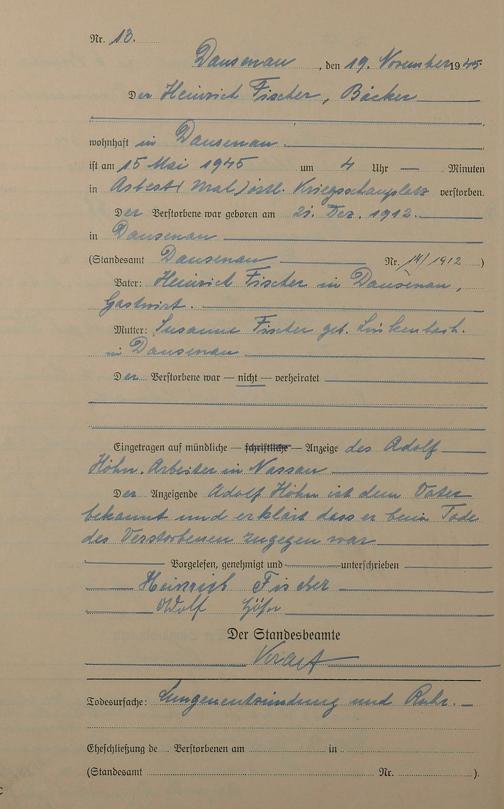 Nr. 13.
Dausenau, den 19. November 1945
Der Heinrich Fischer, Bäcker
wohnhaft in Dausenau
ist am 15 Mai 1945 um 4 Uhr — Minuten
in Asbest (Ural) östl. Kriegsschauplatz verstorben.
Der Verstorbene war geboren am 21. Dez. 1912.
in Dausenau
(Standesamt Dausenau Nr. 14/1912)
Vater: Heinrich Fischer in Dausenau,
Gastwirt.
Mutter: Susanna Fischer geb. Linkenbach.
in Dausenau
Der Verstorbene war — nicht — verheiratet
Eingetragen auf mündliche — schriftliche — Anzeige des Adolf
Höhn. Arbeiter in Nassau
Der Anzeigende Adolf Höhn ist dem Vater
bekannt und erklärt dass er beim Tode
des Verstorbenen zugegen war
Vorgelesen, genehmigt und unterschrieben
Heinrich Fischer
Adolf Höhn
Der Standesbeamte
Todesursache: Lungenentzündung und Ruhr.
Eheschließung de Verstorbenen am in
(Standesamt Nr. ).